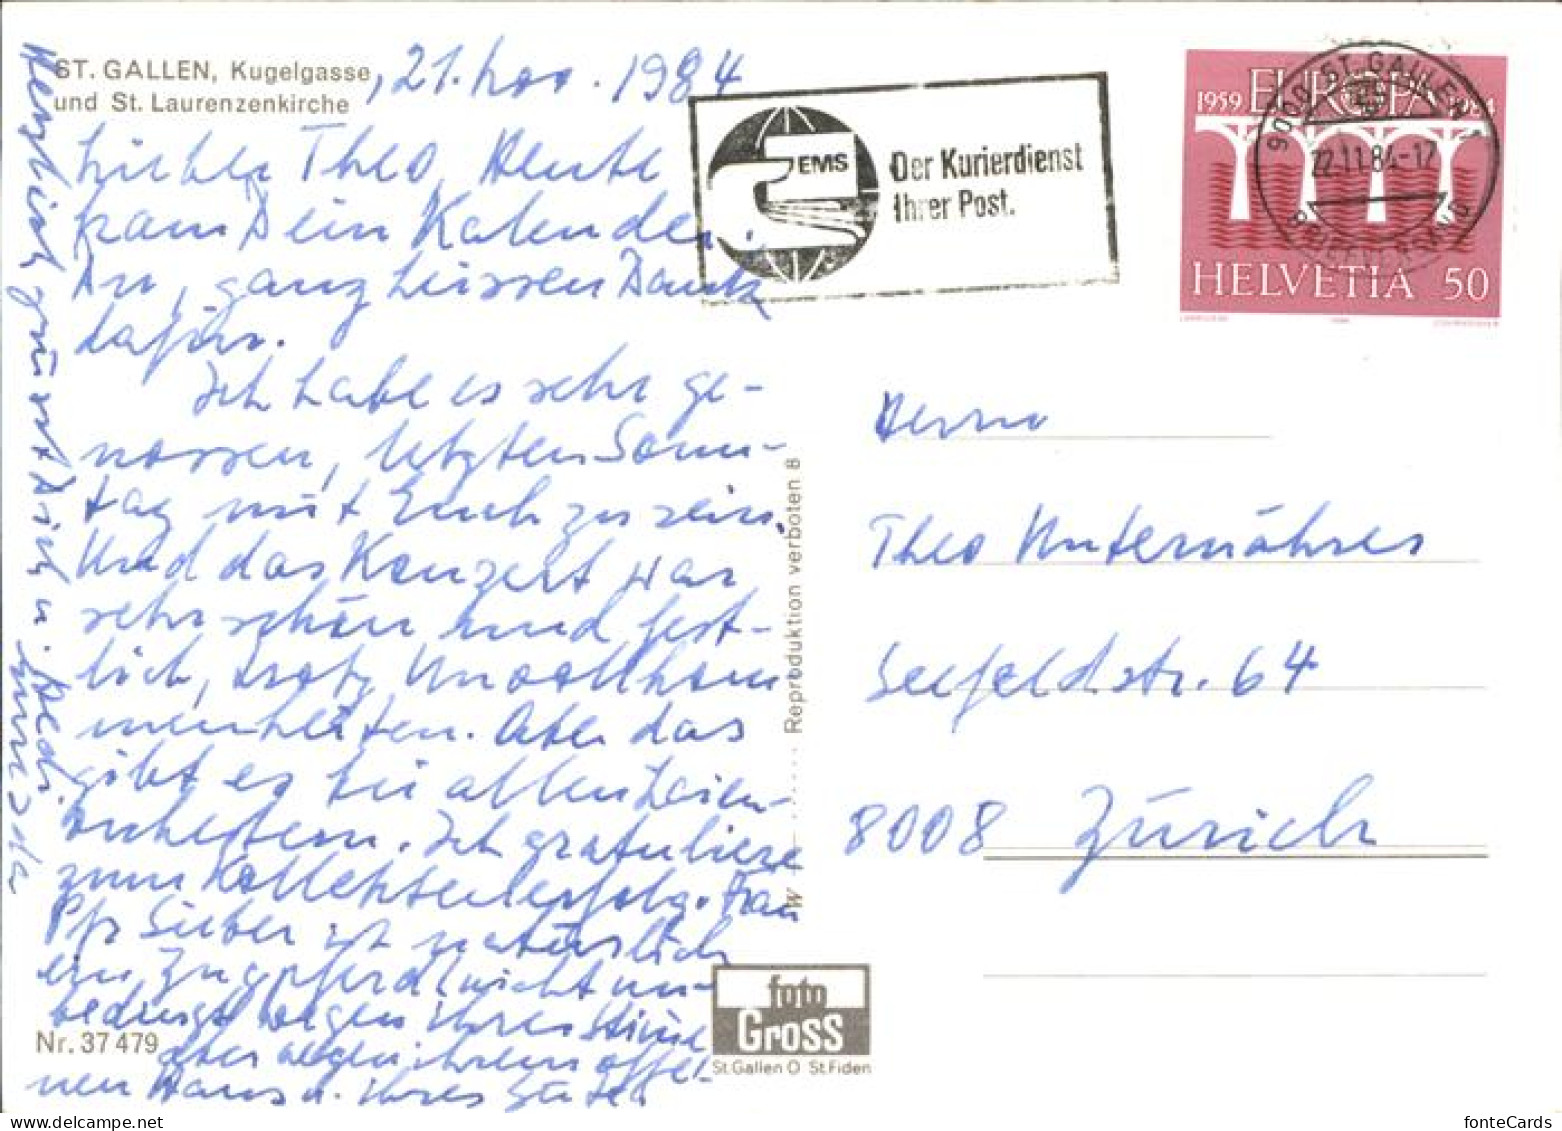 ST. GALLEN, Kugelgasse
und St. Laurenzenkirche
, 21. Nov. 1984
Lieber Theo, Heute
kam Dein Kalender.
An, ganz heissen Dank
dafür.
Ich habe es sehr ge-
nossen, letzten Sonn-
tag mit Euch zu sein.
Und das Konzert war
sehr schön und fest-
lich, trotz Unvollkom
menheiten. Aber das
gibt es bei allen Laien-
orchestern. Ich gratuliere
zum Kollekteerfolg. Frau
Pfr Sieber ist natürlich
ein Zugpferd (nicht un-
bedingt wegen ihrer Stimme
aber wegen ihrem offe-
nen Haus u. ihrer Güte.
Herzlich grüsst Dich u. Hedi
EMS
Der Kurierdienst
Ihrer Post.
1959 EUROPA 1984
HELVETIA 50
9000 ST. GALLEN
22.11.84-17
BRIEFVERSAND
Herrn
Theo Unternährer
Seefeldstr. 64
8008 Zürich
Reproduktion verboten B
W
Nr. 37 479
foto
Gross
St. Gallen O St. Fiden
fonteCards